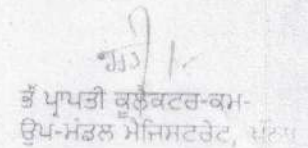 ਭੌਂ ਪ੍ਰਾਪਤੀ ਕੂਲੈਕਟਰ-ਕਮ-
ਉਪ-ਮੰਡਲ ਮੈਜਿਸਟਰੇਟ,